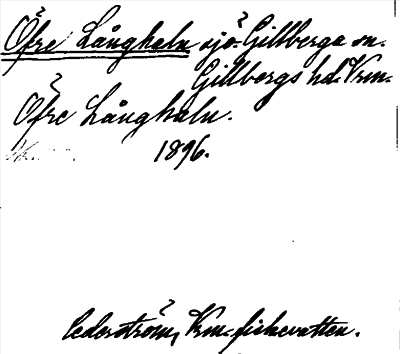 Öfre Långhaln sjö. Gillberga sn.
Gillbergs hd. Vrm.
Öfre Långhaln.
1896.
Cederström, Vrm. fiskevatten.